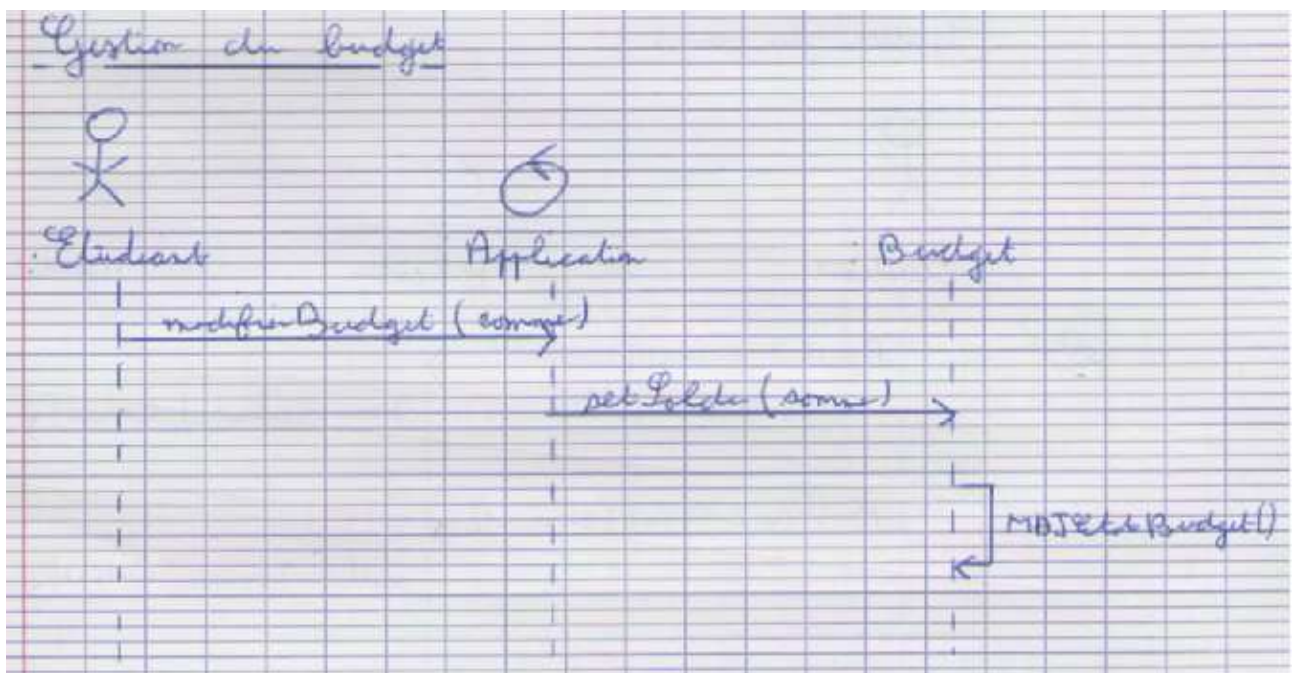 Gestion du budget
: Etudiant
Application
: Budget
modifierBudget (somme)
setSolde (somme)
MAJEtatBudget()